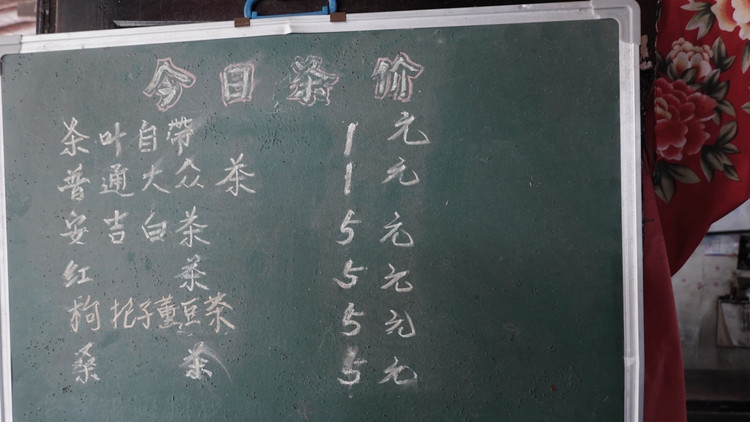 今日茶价
茶叶自带 1元
普通大众茶 1元
安吉白茶 5元
红茶 5元
枸杞子薰豆茶 5元
桑茶 5元